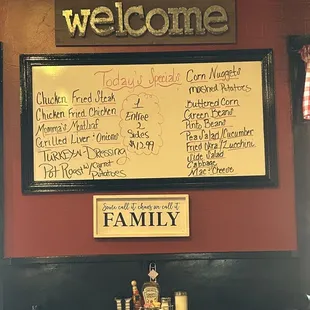 welcome
Today's Specials
Chicken Fried Steak
Chicken Fried Chicken
Momma's Meatloaf
Grilled Liver + Onions
Turkey N-Dressing
Pot Roast w/Carrot
Potatoes
1
Entree
Sides
$12.99
Corn Nuggets
Mashed Potatoes
Buttered Corn
Green Beans
Pinto Beans
Pea Salad/Cucumber
Fried Okra/Zucchini
Side Salad
Cabbage
Mac-Cheese
Some call it chaos we call it
FAMILY